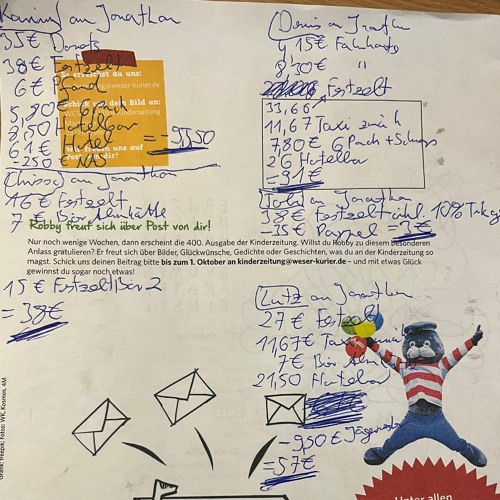 Karina an Jonathan
35€ Donots
38€ Festzelt
6€ Pfand
5,80
8,50 Hotelbar
61€ Hotel
-250€
= -95,50
So erreichst du uns:
@weser-kurier.de
Schick uns dein Bild an:
Wir freuen uns auf
Post von dir!
an Jonathan
16€ Festzelt
7€ Bier Almhütte
15€ Festzelt Bier 2
= 38€
Denis an Jonathan
4,15€ Fahrkarte
8,30€ "
Festzelt
33,66
11,67 Taxi zurück
7,80€ 6Pack + Schnaps
26 Hotelbar
= 91€
an Jonathan
38€ Festzelt inkl. 10% Trinkg
-35€ = 3€
Robby freut sich über Post von dir!
Nur noch wenige Wochen, dann erscheint die 400. Ausgabe der Kinderzeitung. Willst du Robby zu diesem besonderen
Anlass gratulieren? Er freut sich über Bilder, Glückwünsche, Gedichte oder Geschichten, was du an der Kinderzeitung so
magst. Schick uns deinen Beitrag bitte bis zum 1. Oktober an kinderzeitung@weser-kurier.de – und mit etwas Glück
gewinnst du sogar noch etwas!
Lutz an Jonathan
27€ Festzelt
11,67€ Taxi
7€ Bier Almhütte
21,50 Hotelbar
-9,50€ Jägermeister
= 57€
Grafik: freepik; Fotos: WK, Kosmos, 4M
Unter allen